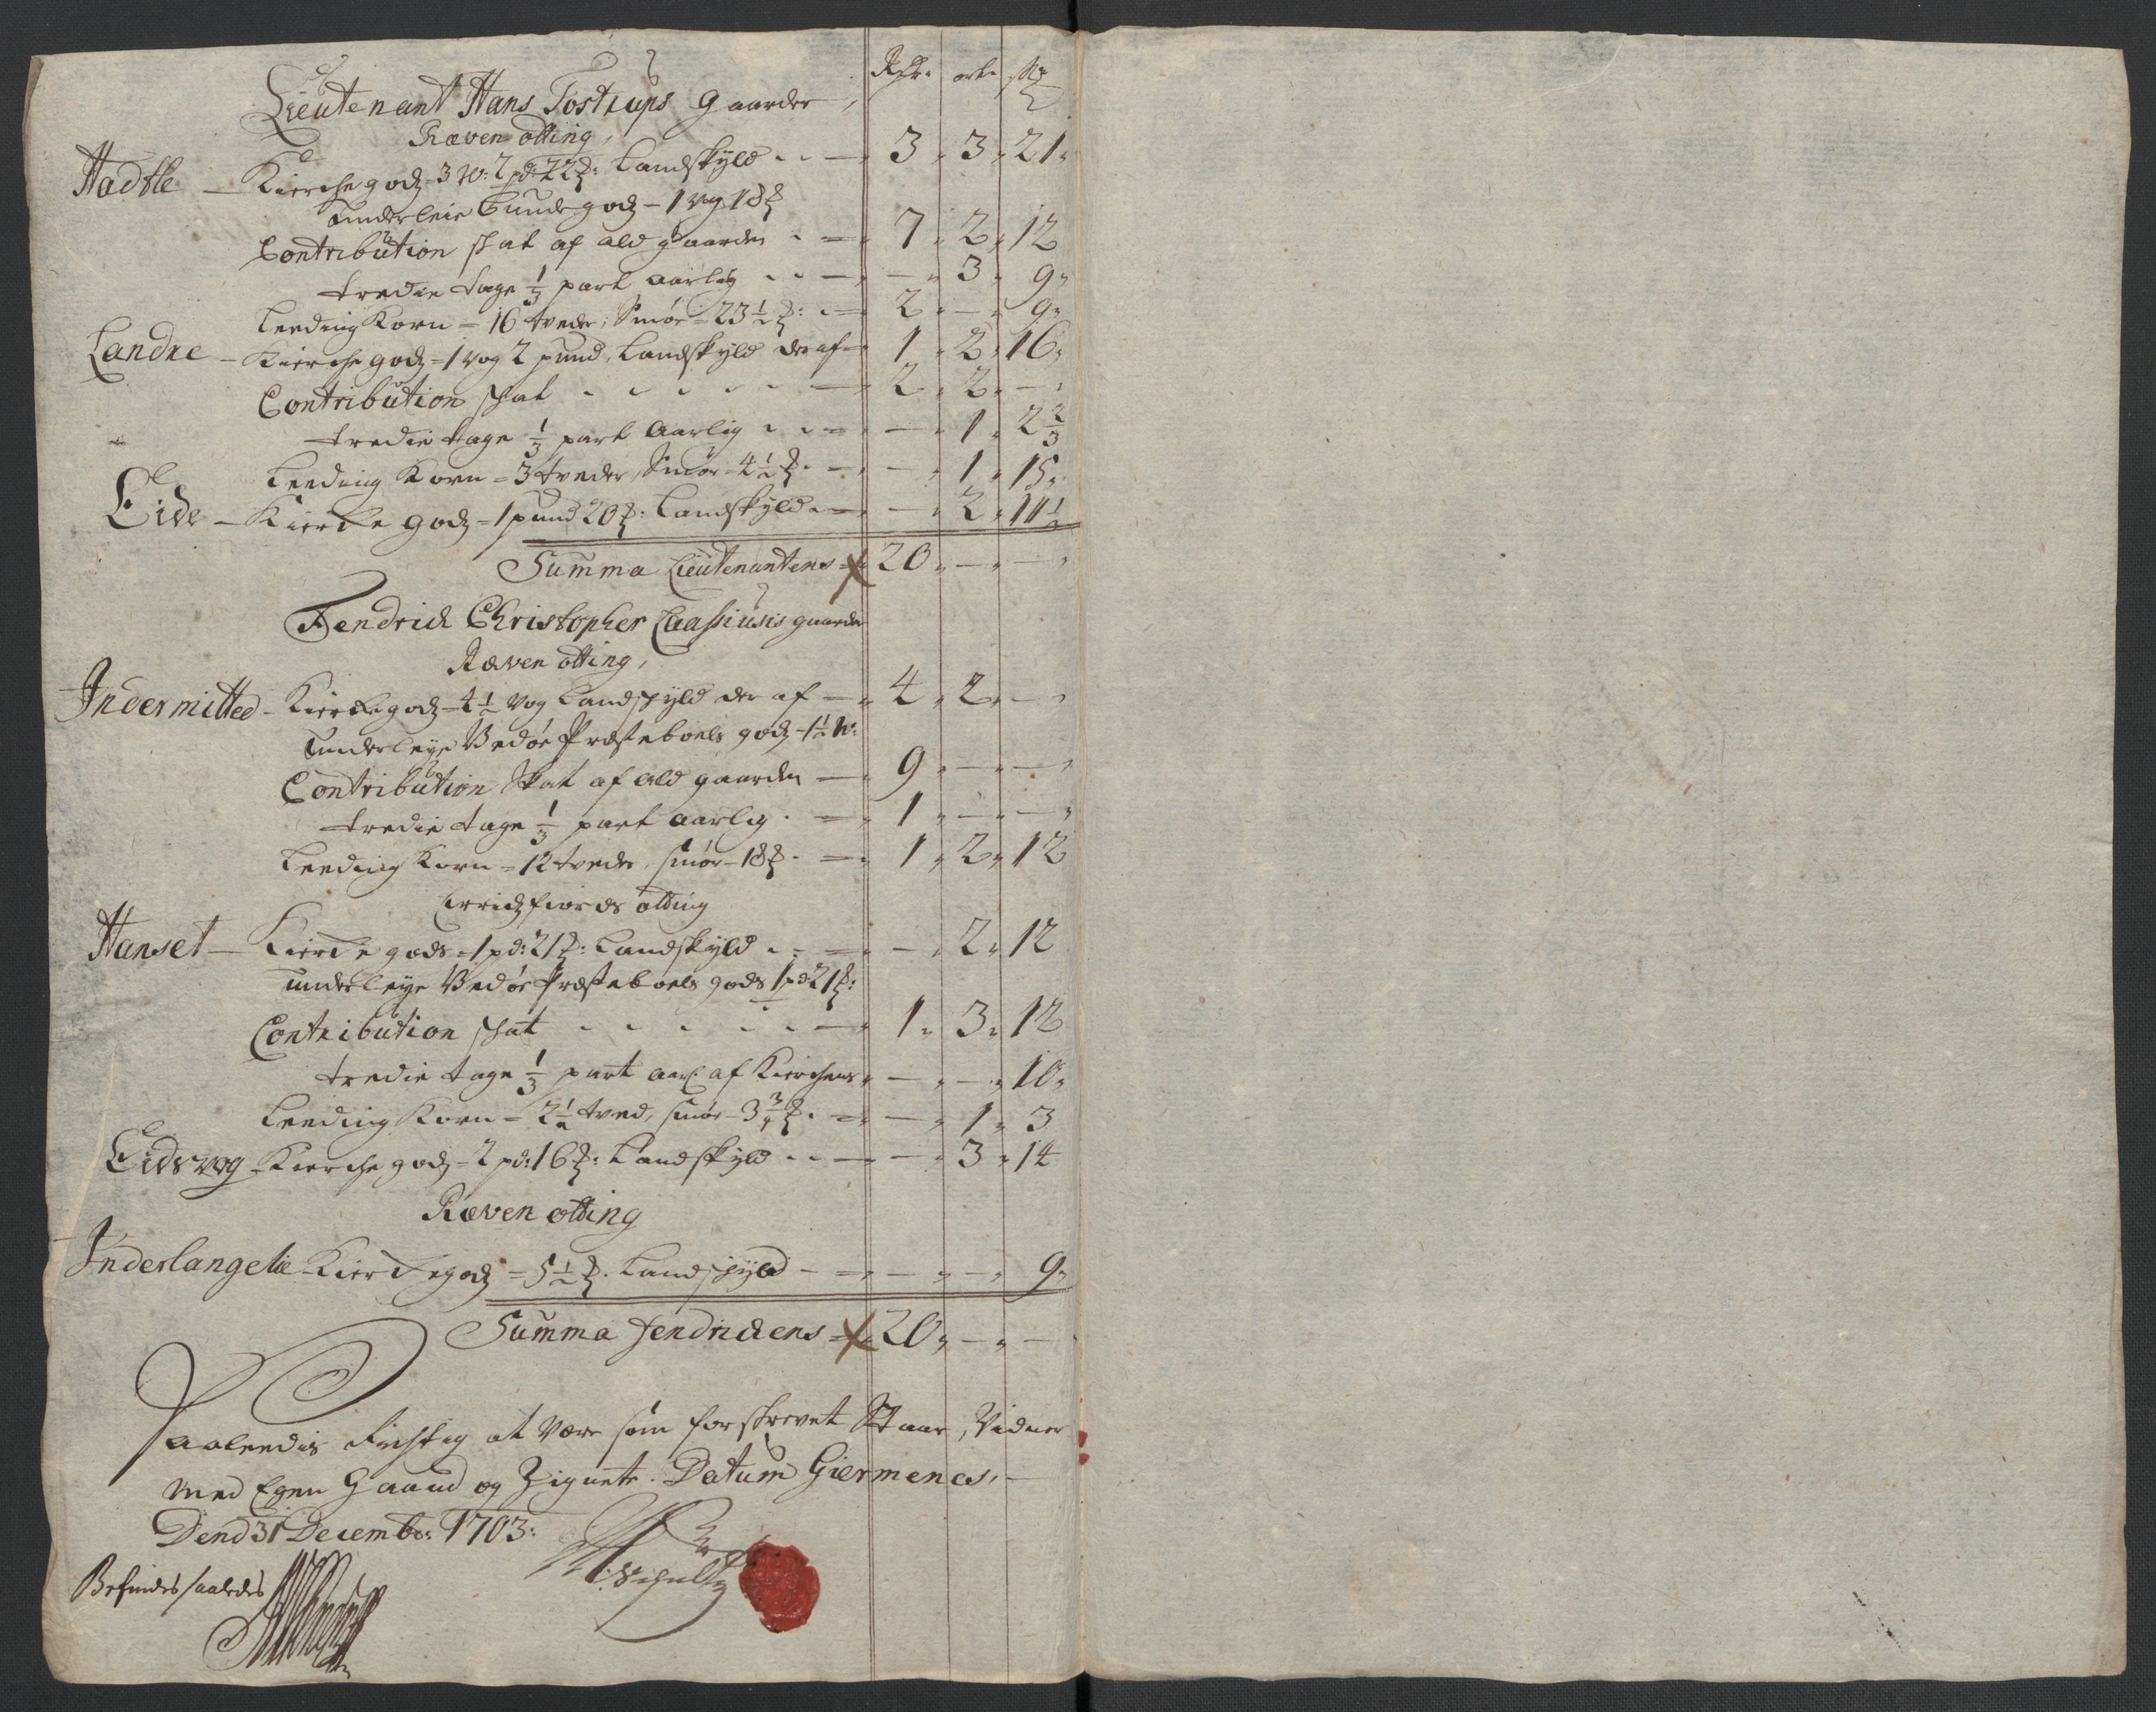 Rdr. ort. sk
Lieutenant Hans Tostrups gaarder,
Ræven otting,
Hadtle – Kierche godz - 3 W: 2 pd: 22 ℔: Landskyld . . — 3 " 3 " 21 "
Underleie bunde godz – 1 vog 18 ℔
Contribution skat af ald gaarden . — 7 " 2 " 12
tredie tage 1/3 part aarlig . . — — " 3 " 9 "
Leeding Korn = 16 tveder, Smør = 23 1/2 ℔: . — 2 " — " 9 "
Landre – Kierche godz = 1 vog 2 pund, Landskyld der af — 1 " 2 " 16 "
Contribution skat . . . . . — 2 " 2 " —
tredie tage 1/3 part Aarlig . . — — " 1 " 2 2/3
Leeding Korn = 3 tveder, Smør – 4 1/2 ℔ . — — " 1 " 15 "
Eide – Kierke godz = 1 pund 20 ℔: Landskyld . — — " 2 " 11 1/2
Summa Lieutenantens = 20 " — " —
Fendrich Christopher Caassiusis gaarder
Ræven otting,
Indermitted – Kierke godz – 4 1/2 Vog Landskyld der af — 4 " 2 " —
Underleye Vedøe Præsteboels godz – 1 1/2 W:
Contribution Skat af ald gaarden — 9 " — " —
tredie tage 1/3 part aarlig . — 1 " — " —
Leeding Korn = 12 tveder, smør – 18 ℔ . — 1 " 2 " 12
Erridzfiords otting
Hanset – Kierke gods = 1 pd: 21 ℔: Landskyld . . — — " 2 " 12
underleye Vedøe Præsteboels gods 1 pd: 21 ℔:
Contribution skat . . . . . — 1 " 3 " 12
tredie tage 1/3 part aarl af Kierchens " — " — " 10 "
Leeding Korn – 2 1/2 tved, smør – 3 3/4 ℔ . — — " 1 " 3
Eidsvog – Kierche godz = 2 pd: 16 ℔: Landskyld . . — — " 3 " 14
Ræven otting
Inderlangelie – Kierke godz = 5 1/2 ℔. Landskyld – — — " — " 9 "
Summa fendrickens = 20 " — " —
Saaleedis Rigtig at være som forskrevet Staar, Vidner
med Egen Haand og Zignete. Datum Giermenes, –
Dend 31 Decembr: 1703:
Schultz
Befindes saaledes